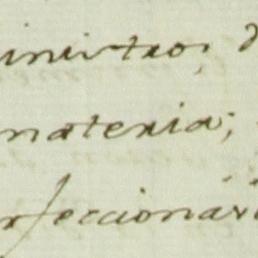 inistro, d
materia;
rfeccionári